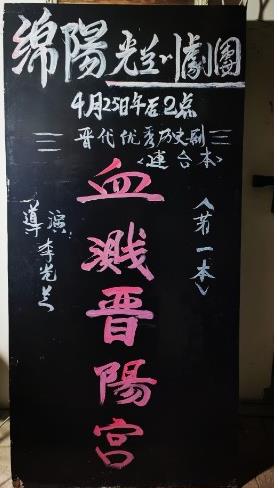 绵陽光兰川劇團
4月25日午后2点
晋代优秀历史剧
<連台本>
血溅晋陽宫
<第一本>
導演:李光兰